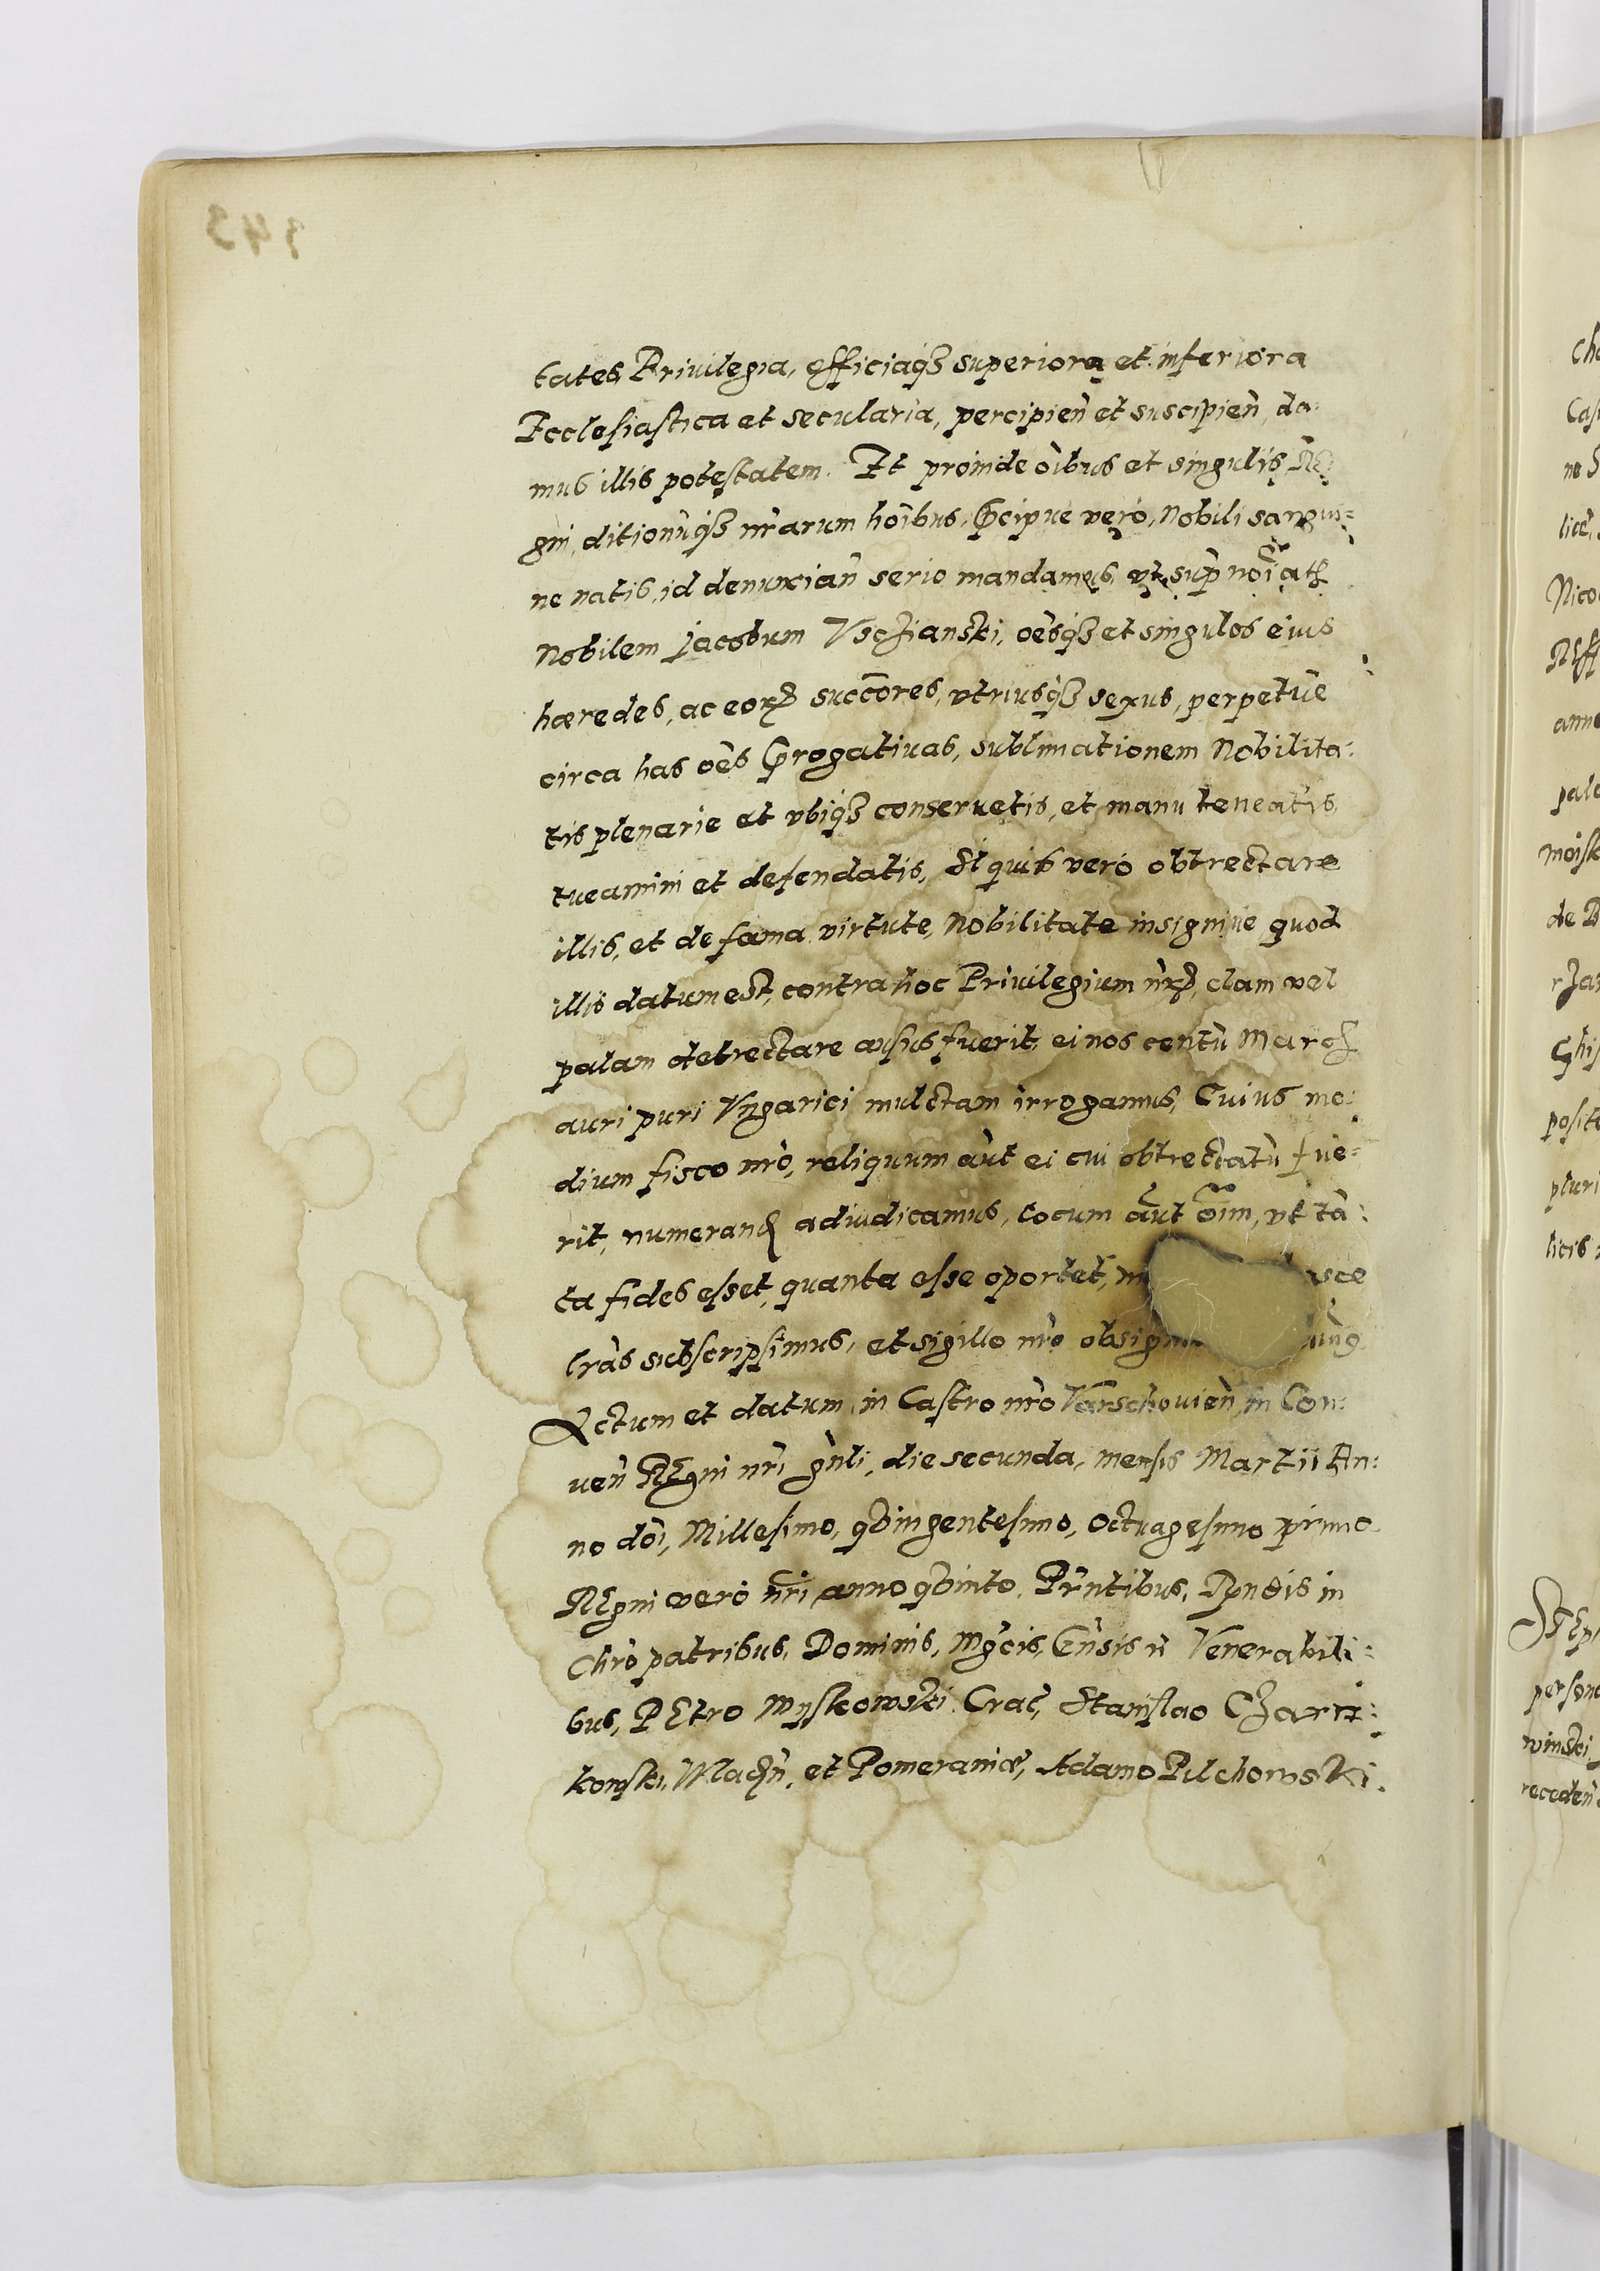 tates, Priuilegia, officiaq3 superiora et inferiora
Ecclesiastica et secularia, percipien̄ et suscipien̄, da:
mus illis potestatem. Et proinde oı̄bus et singulis Re
gni, ditionūq3 nr̄arum hoı̄bus, Pcipue vero, Nobili sangui=
ne natis, id denuncian̄ serio mandamus, vt sup̄
Nobilem Jacobum Vscziański, oēsq3 et singulos eius
hæredes, ac eorꝝ succōres, vtriusq3 sexus, perpetue
circa has oēs Progatiuas, sublimationem Nobilita:
tis plenarie et vbiq3 conseruetis, et manu teneatis,
tueamini et defendatis, Si quis vero obtrectare
illis, et de fama virtute, Nobilitate insignijue quod
illis datum est, contra hoc Priuilegium nr̄ꝝ, clam vel
palam detrectare ausus fuerit, ei nos centū Marcz
auri puri Vngarici mulctam irrogamus, Cuius me:
dium fisco nr̄o, reliquum aūt ei cui obtrectatū fue=
rit, numerand adiudicamus, eocum aūt oı̄m, vt tā:
ta fides esset, quanta esse oportet, m sce
lr̄as subscripsimus, et sigillo nr̄o obsign
Actum et datum, in Castro nr̄o Varschouien̄, in Con:
uen̄ Regni nr̄i gn̄li, die secunda, mensis Martii An:
no dōi, Millesimo, qᵭingentesimo, Octuagesimo primo
Regni vero nr̄i anno qᵭinto, Prn̄tibus, Rndis in
Chr̄o patribus, Dominis, Mgcis, Gn̄sis n̄ Venerabili:
bus, Petro Myskowski Crac̄, Stanislao Czarn:
kowski, Mladn̄, et Pomeraniæ, Adamo Pilchowski.